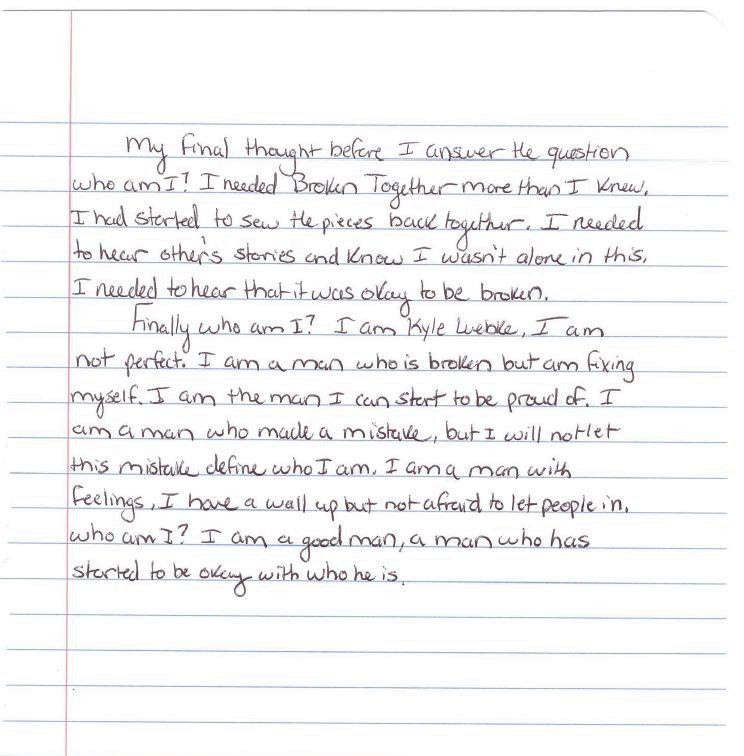 My final thought before I answer the question
who am I? I needed Broken Together more than I knew.
I had started to sew the pieces back together. I needed
to hear other's stories and know I wasn't alone in this.
I needed to hear that it was okay to be broken.
Finally who am I? I am Kyle Luebke, I am
not perfect. I am a man who is broken but am fixing
myself. I am the man I can start to be proud of. I
am a man who made a mistake, but I will not let
this mistake define who I am. I am a man with
feelings, I have a wall up but not afraid to let people in.
who am I? I am a good man, a man who has
started to be okay with who he is.